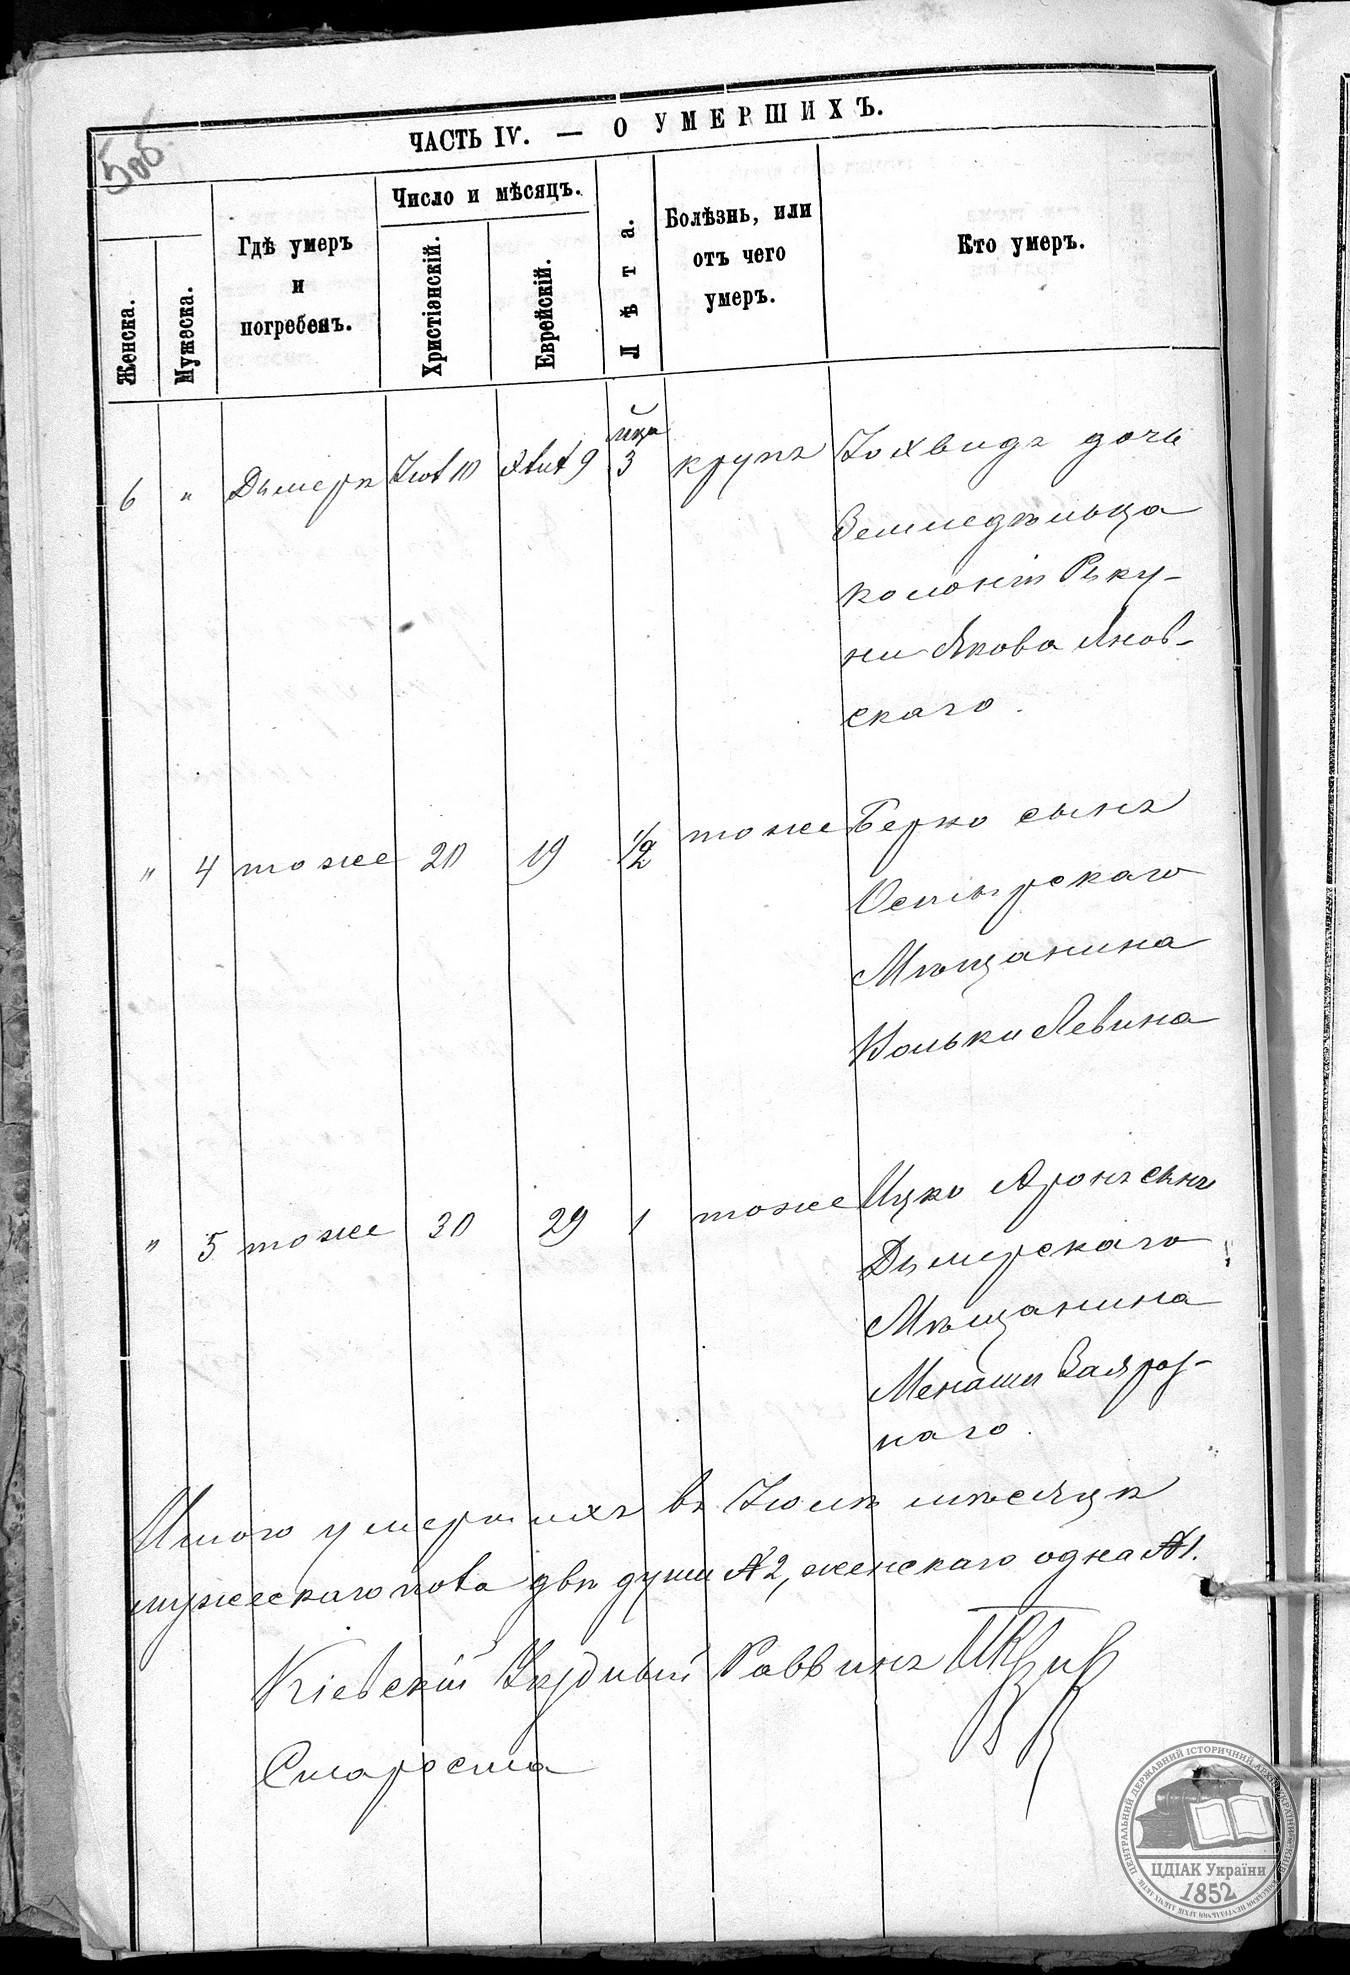 5об
ЧАСТЬ IV. — О УМЕРШИХЪ.
Женска.
Мужеска.
Гдѣ умеръ
и
погребенъ.
Число и мѣсяцъ.
Христіанскій.
Еврейскій.
Лѣта.
Болѣзнь, или
отъ чего
умеръ.
Кто умеръ.
6 " Дымеръ 10 9 3 крупъ Іохвидъ дочь
Земледѣльца
колоніи Рыку-
ни Якова Янов-
скаго.
" 4 тоже 20 19 1/2 тоже Берко сынъ
Остырскаго
Мѣщанина
Вольки Левина
" 5 тоже 30 29 1 тоже Ицко Аронъ сынъ
Дымерскаго
Мѣщанина
Менаши
наго.
Итого умершихъ въ Іюлѣ мѣсяцѣ
мужескаго пола двѣ души № 2, женскаго одна № 1.
Кіевскій Уѣздный Раввинъ
Староста
ЦЕНТРАЛЬНИЙ ДЕРЖАВНИЙ ІСТОРИЧНИЙ АРХІВ УКРАЇНИ, М. КИЇВ
ЦДІАК України
1852